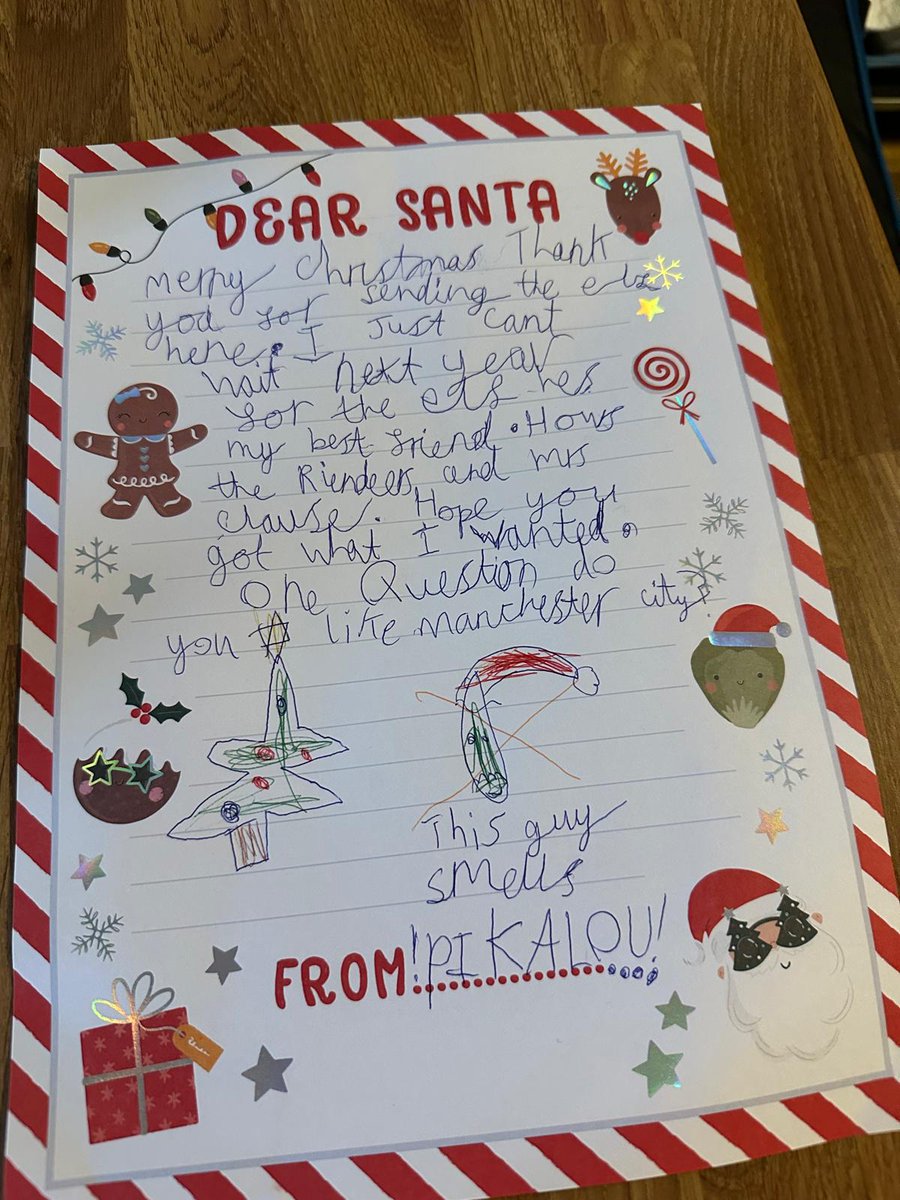 DEAR SANTA
merry christmas Thank
you for sending the elf
here. I Just cant
wait next year
for the elfs hes
my best friend. Hows
the Riendeers and mrs
clause. Hope you
got what I wanted.
One Question do
you like manchester city?
This guy
smells
FROM !PIKALOU!